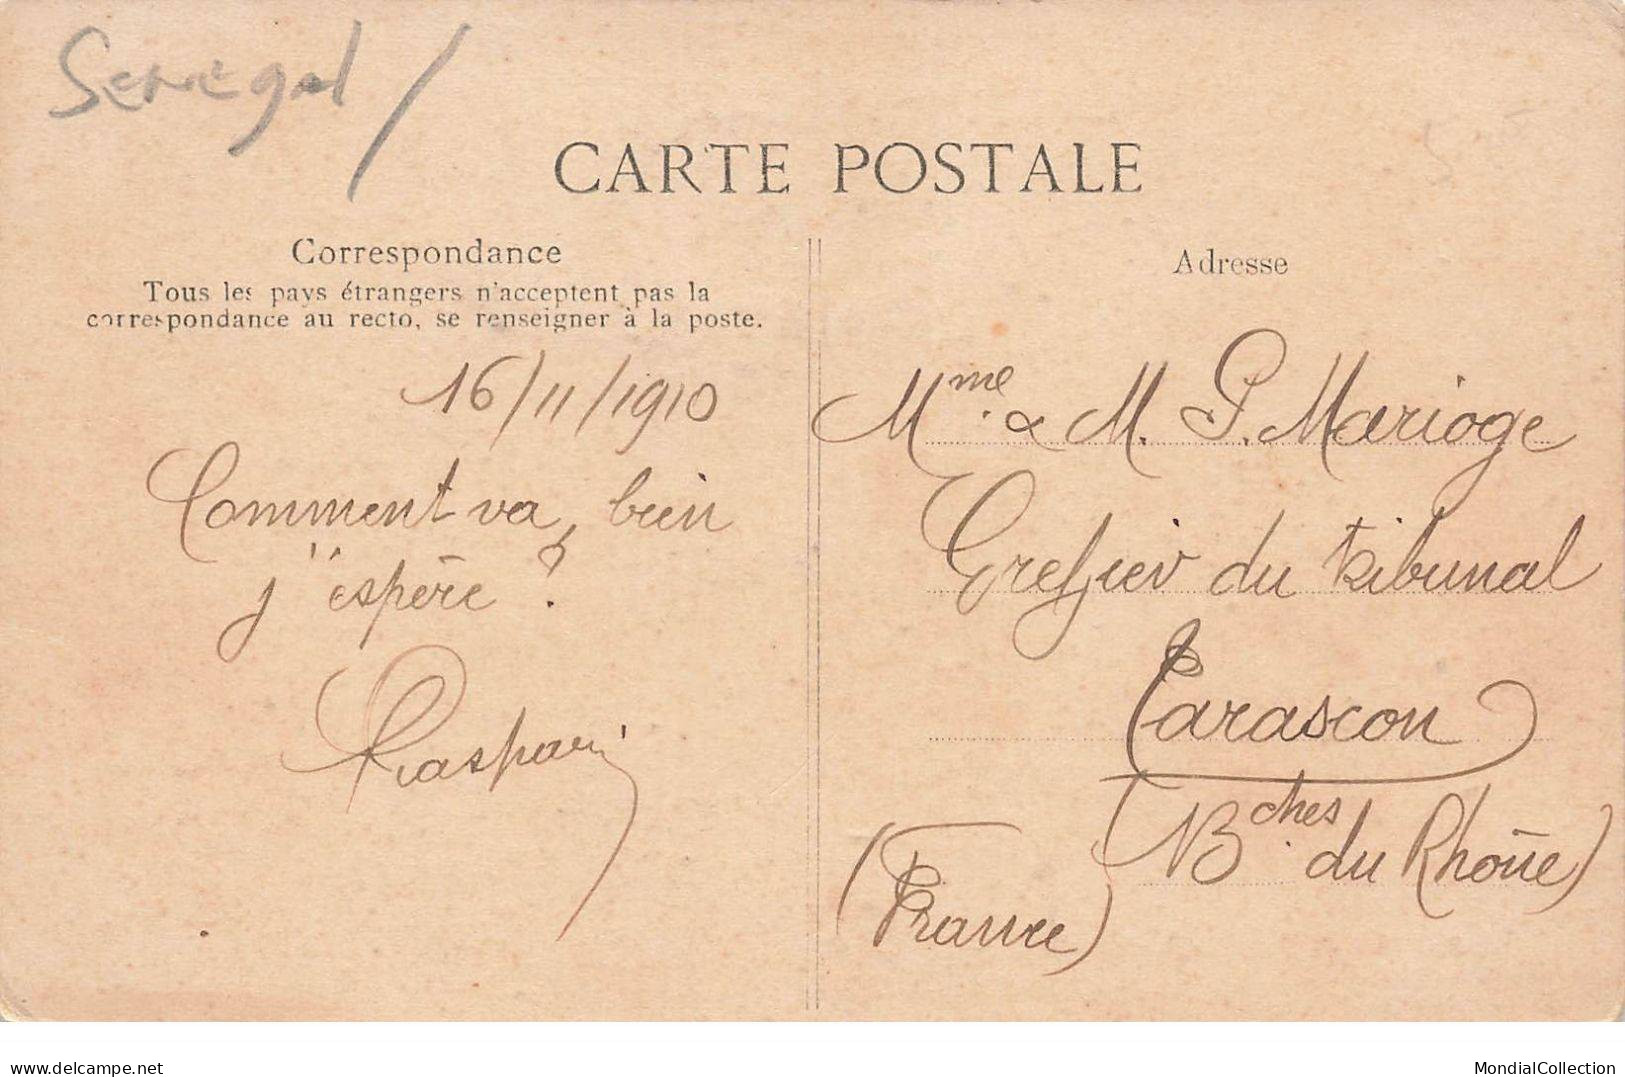 Senegal /
CARTE POSTALE
Correspondance
Tous les pays étrangers n'acceptent pas la
correspondance au recto, se renseigner à la poste.
16/11/1910
Comment va, bien
j'espère ?
Adresse
Mme & M. P. Marioge
Greffier du tribunal
Tarascon
(Bches du Rhône)
(France)
delcampe.net
MondialCollection